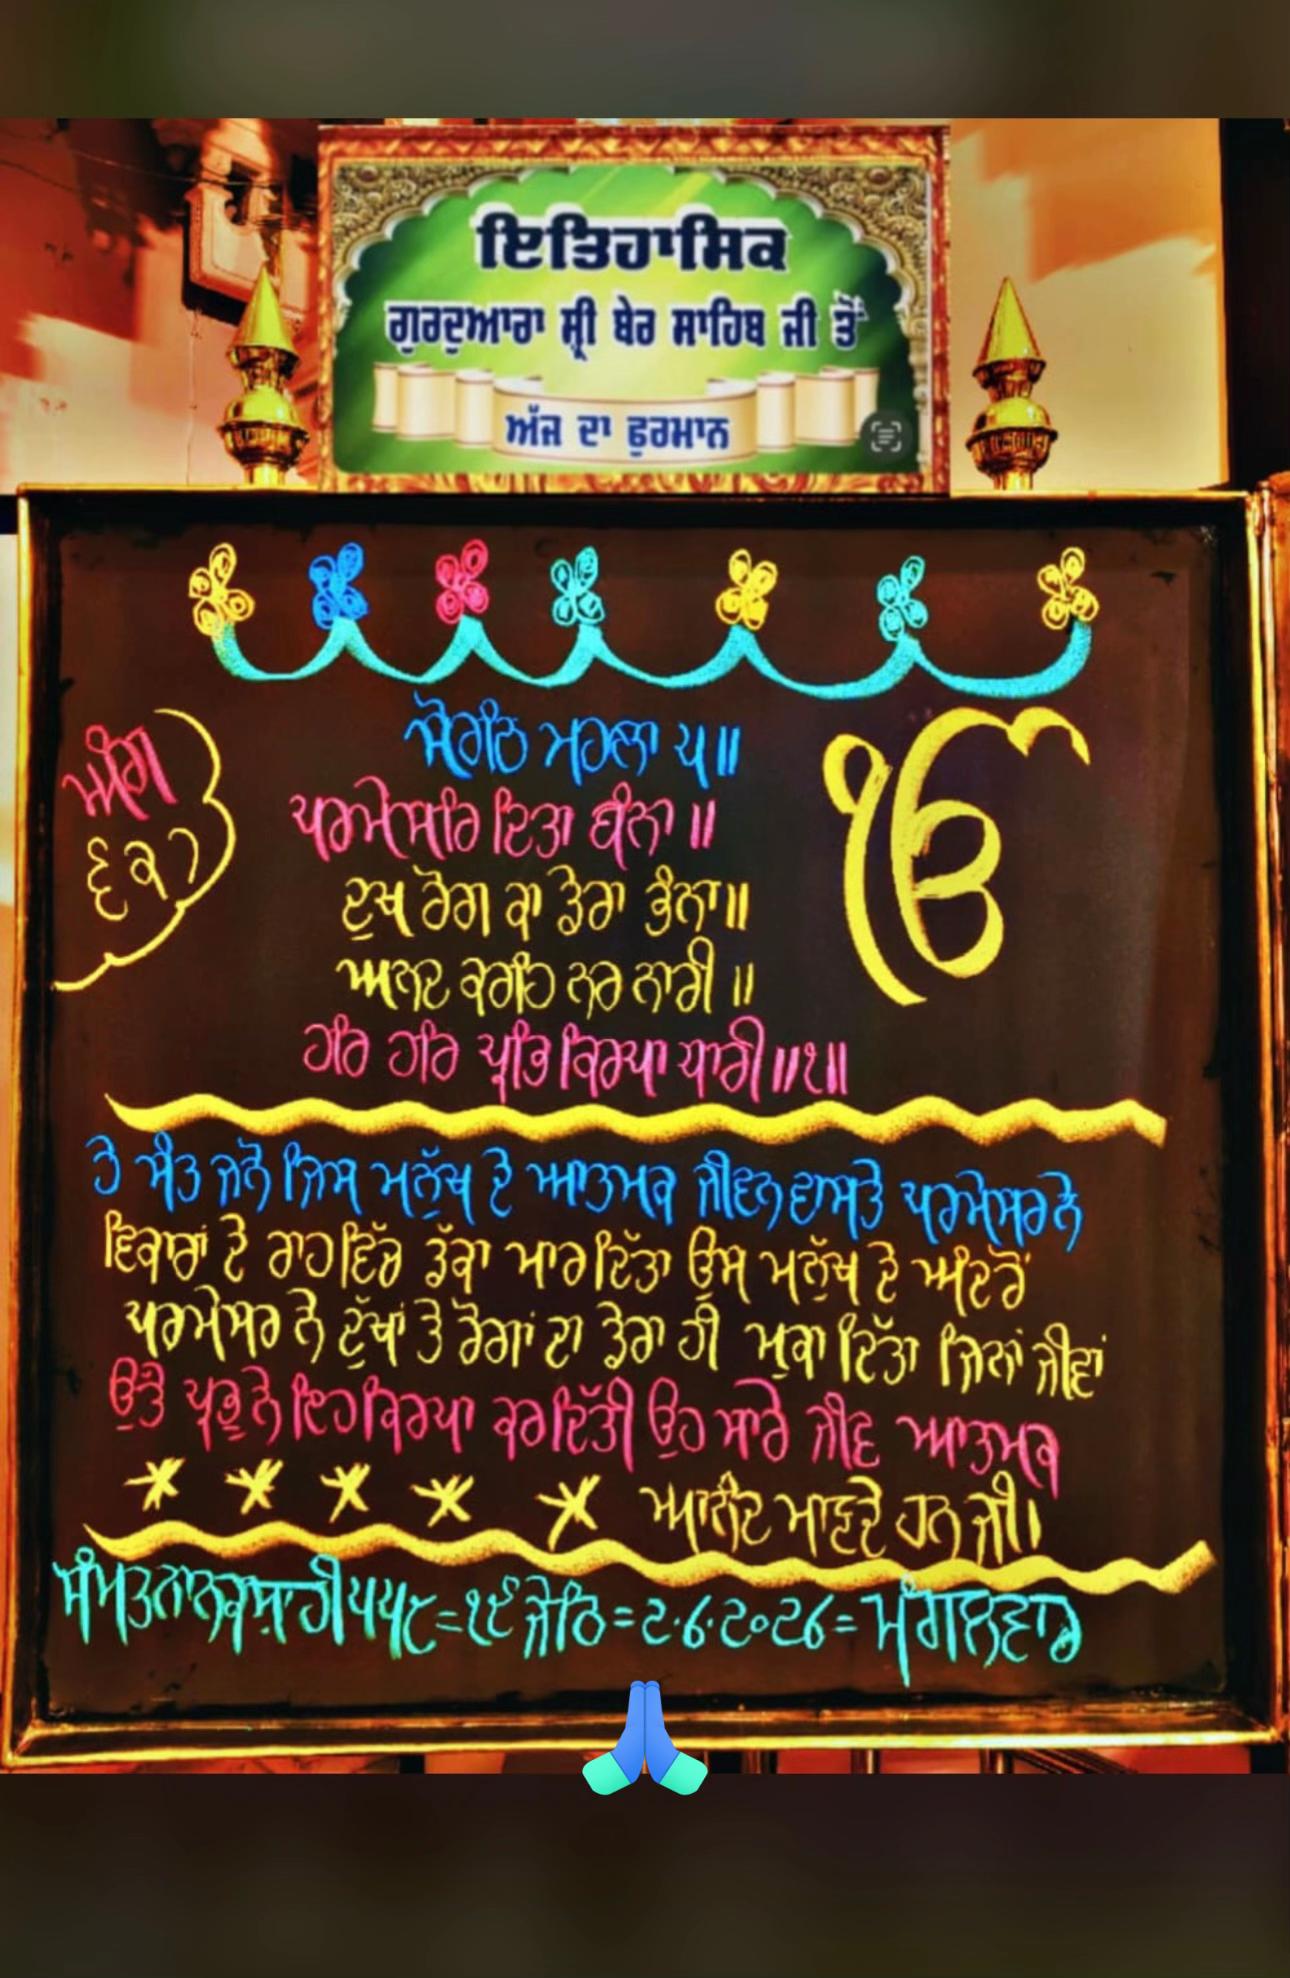 ਇਤਿਹਾਸਿਕ
ਗੁਰਦੁਆਰਾ ਸ਼੍ਰੀ ਬੇਰ ਸਾਹਿਬ ਜੀ ਤੋਂ
ਅੱਜ ਦਾ ਫੁਰਮਾਨ
ਸੋਰਠਿ ਮਹਲਾ ੫॥
ੴ
ਅੰਗ
੬੨੭
ਪਰਮੇਸਰਿ ਦਿਤਾ ਬੰਨਾ ॥
ਦੁਖ ਰੋਗ ਕਾ ਡੇਰਾ ਭੰਨਾ॥
ਅਨਦ ਕਰਹਿ ਨਰ ਨਾਰੀ ॥
ਹਰਿ ਹਰਿ ਪ੍ਰਭਿ ਕਿਰਪਾ ਧਾਰੀ॥੧॥
ਹੇ ਸੰਤ ਜਨੋ ਜਿਸ ਮਨੁੱਖ ਦੇ ਆਤਮਕ ਜੀਵਨ ਵਾਸਤੇ ਪਰਮੇਸਰ ਨੇ
ਵਿਕਾਰਾਂ ਦੇ ਰਾਹ ਵਿੱਚ ਡੱਕਾ ਮਾਰ ਦਿੱਤਾ ਉਸ ਮਨੁੱਖ ਦੇ ਅੰਦਰੋਂ
ਪਰਮੇਸਰ ਨੇ ਦੁੱਖਾਂ ਤੇ ਰੋਗਾਂ ਦਾ ਡੇਰਾ ਹੀ ਮੁਕਾ ਦਿੱਤਾ ਜਿਨਾਂ ਜੀਵਾਂ
ਉਤੇ ਪ੍ਰਭੂ ਨੇ ਇਹ ਕਿਰਪਾ ਕਰ ਦਿੱਤੀ ਉਹ ਸਾਰੇ ਜੀਵ ਆਤਮਕ
ਆਨੰਦ ਮਾਣਦੇ ਹਨ ਜੀ।
ਸੰਮਤ ਨਾਨਕਸ਼ਾਹੀ ੫੫੮=੧੯ ਜੇਠ=੨.6.੨੦੨6=ਮੰਗਲਵਾਰ